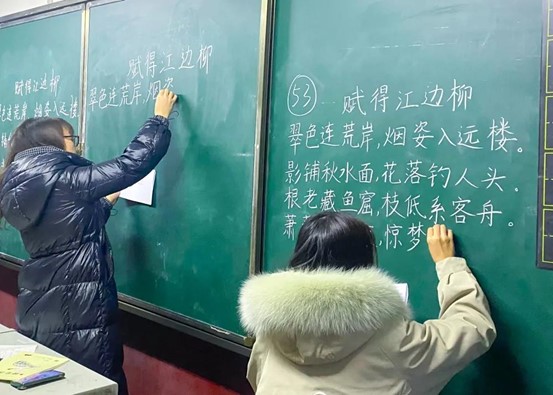 赋得江边柳
翠色连荒岸，烟姿入远楼。
赋得江边柳
翠色连荒岸，烟姿
53 赋得江边柳
翠色连荒岸，烟姿入远楼。
影铺秋水面，花落钓人头。
根老藏鱼窟，枝低系客舟。
萧，惊梦